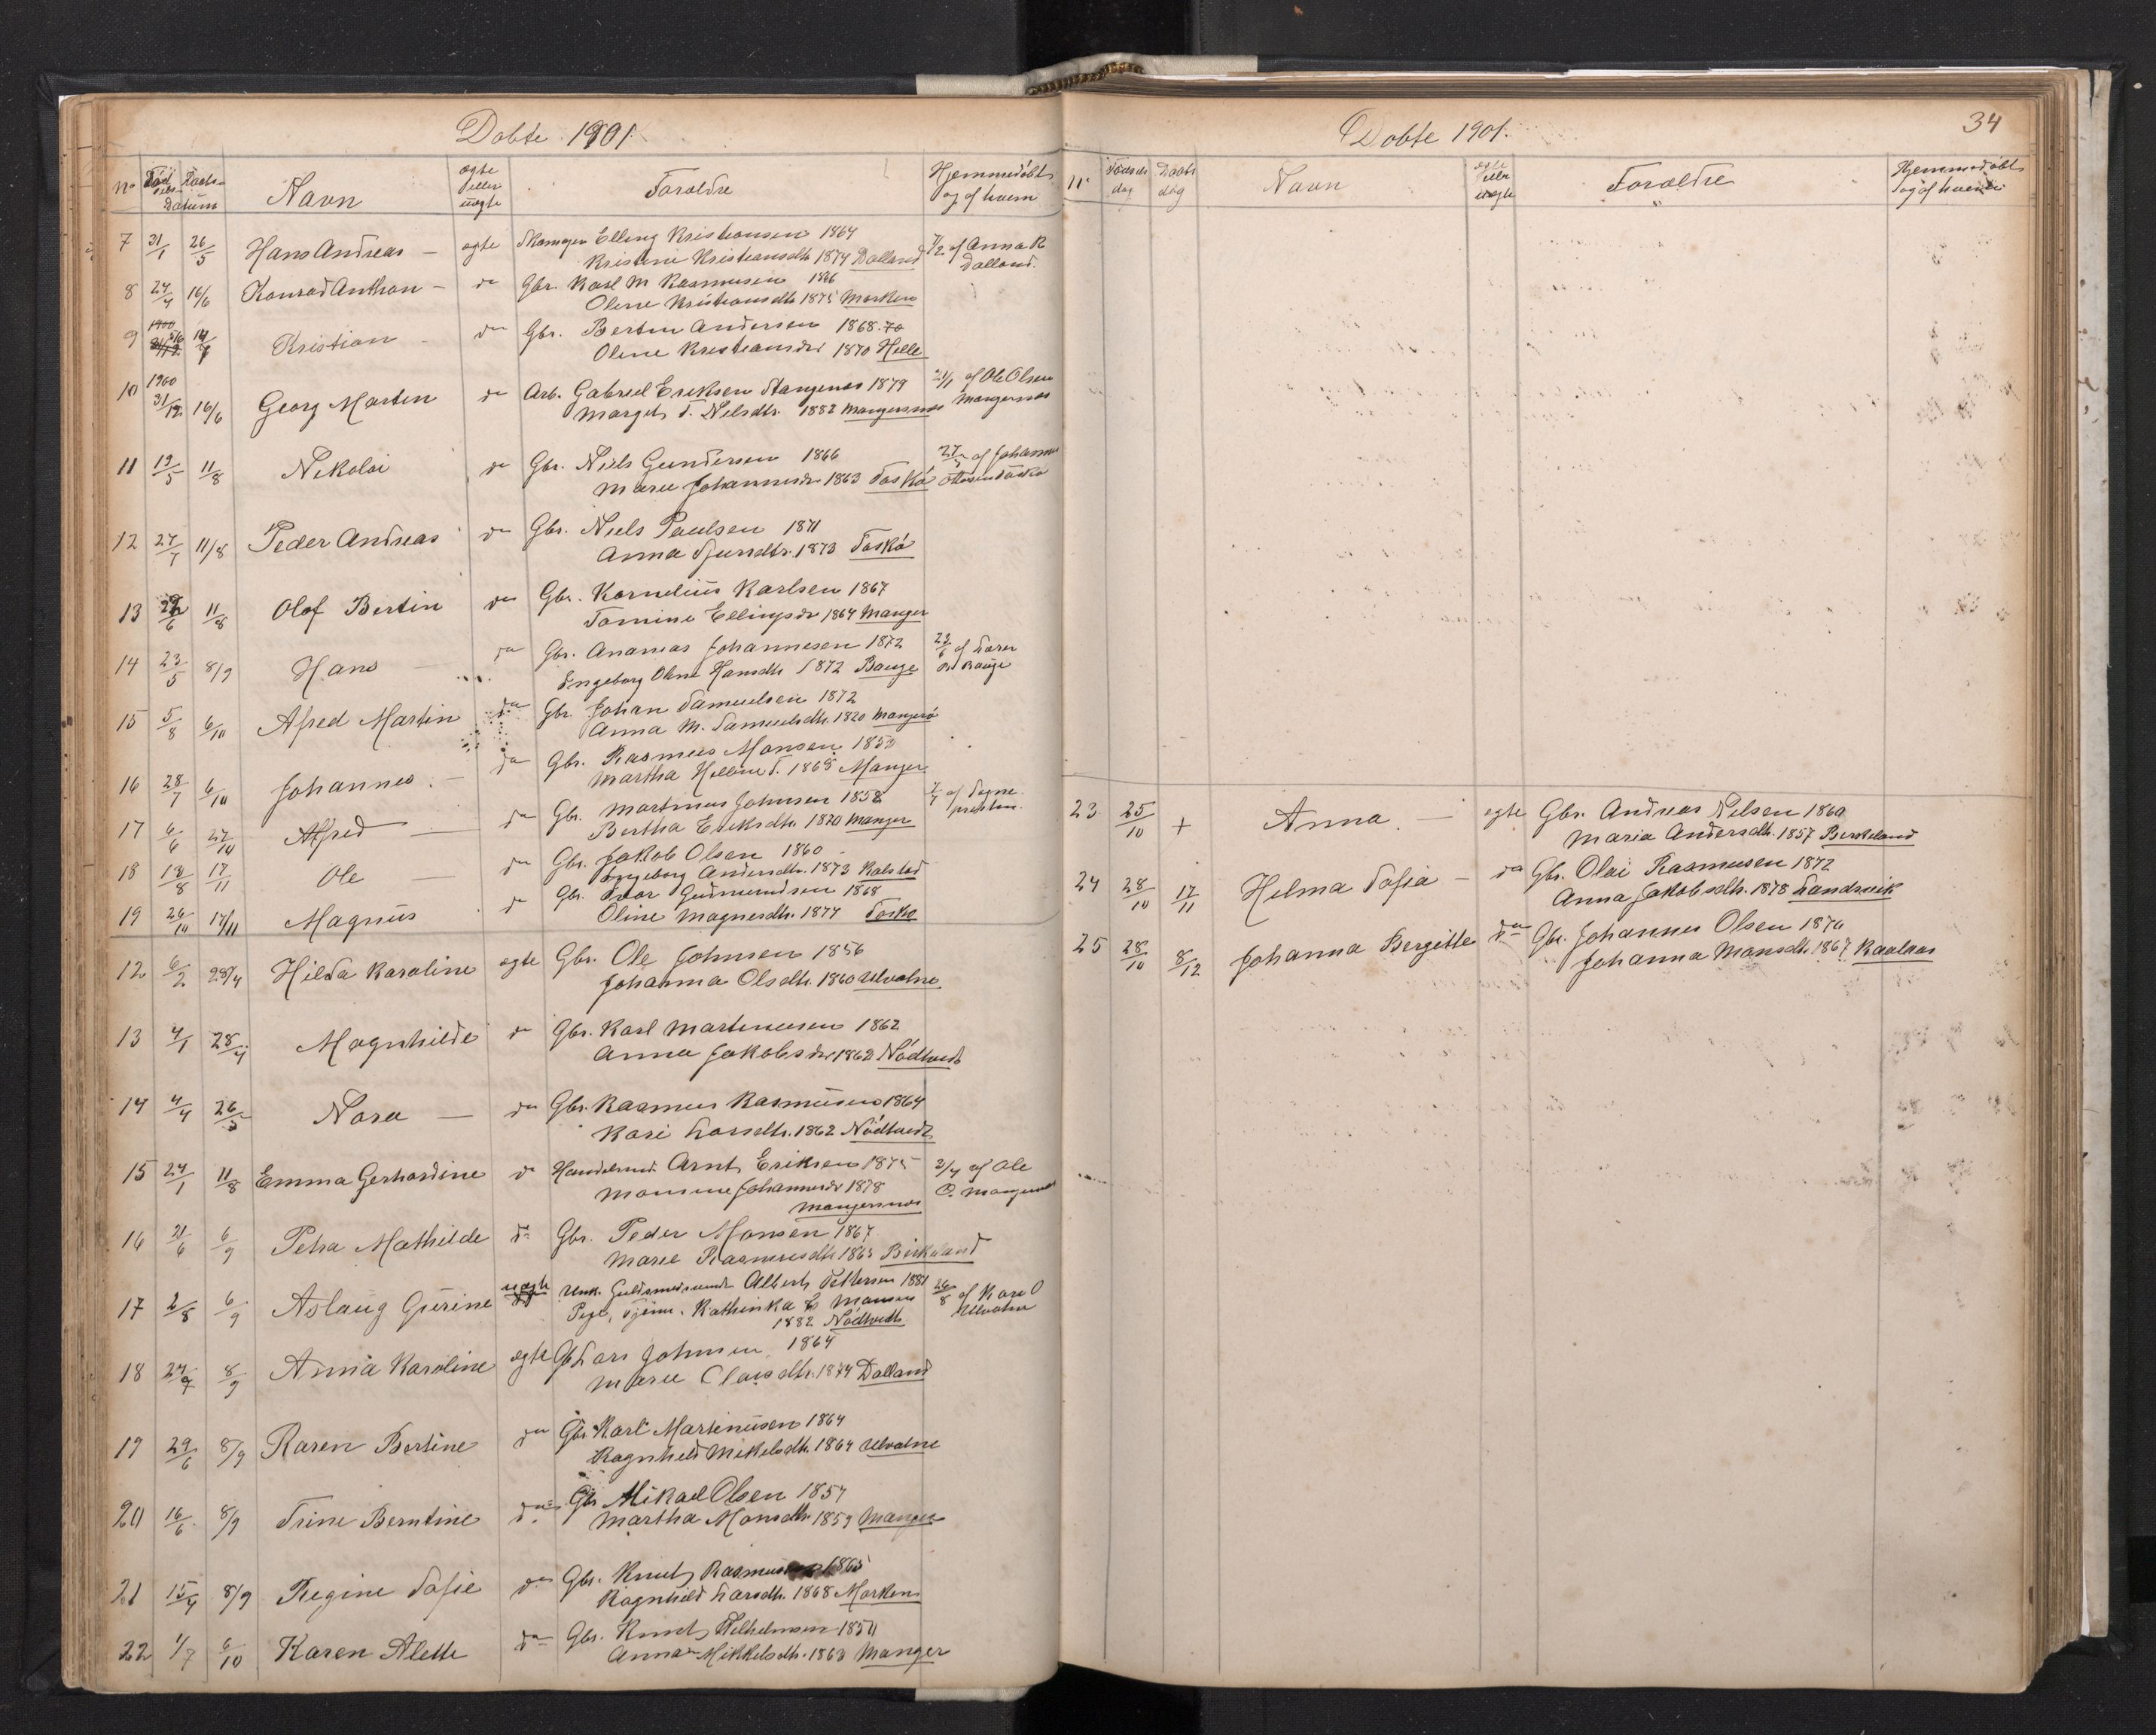 Døbte 1901.
No Født Daabs- Datum Navn ægte eller uægte Forældre Hjemmedøbt og af hvem
7 31/1 26/5 Hans Andreas — ægte Elling Kristiansen 1864 7/2 af Anna K
Kristine Kristiansdtr 1874 Dalland Dalland.
8 24/4 16/6 Konrad Anthon — do Gbr. Karl M Rasmussen 1866
Oline Kristiansdtr 1875 Marken
1900
9 Kristian — do Gbr. Bertin Andersen 1868
Oline Kristiansdr 1870 Helle
1900
10 31/12 16/6 Georg Martin do Arb. Gabriel Eriksen Stangenes 1879 21/1 af Ole Olsen
Margit T. Nilsdtr. 1882 Mangersnes Mangersnes
11 19/5 11/8 Nikolai do Gbr. Niels Gundersen 1866 af Johanne
Marie Johannesdr 1863 Toskö
12 27/7 11/8 Peder Andreas do Gbr. Niels Paulsen 1871
Anna Sjursdtr. 1873 Toskö
13 11/8 Olaf Bertin do Gbr. Kornelius Karlsen 1867
Tomine Ellingsdr 1864 Manger
14 23/5 8/9 Hans — do Gbr. Ananias Johannesen 1872 af Lars
Ingeborg Oline Hansdtr 1872 Bauge Bauge
15 5/8 6/10 Afred Martin do Gbr. Johan Samuelsen 1872
Anna M. Samuelsdtr. 1870 Mangerö
16 28/7 6/10 Johannes. — do Gbr. Rasmus Monsen 1853
Martha Helline T. 1865 Manger
17 6/6 27/10 Alfred — do Gbr. Martinus Johnsen 1858 af Sogne-
Bertha Eriksdtr. 1870 Manger presten.
18 18/8 17/11 Ole — do Gbr. Jakob Olsen 1860
Ingeborg Andersdtr. 1873 Kolstad
19 26/10 17/11 Magnus do Gbr. Ivar Gudmundsen 1868
Oline Magnesdtr. 1874 Toskø
12 6/2 28/4 Hilda Karoline ægte Gbr. Ole Johnsen 1856
Johanna Olsdtr. 1860 Ulvatne
13 4/1 28/4 Magnhilde do Gbr. Karl Martinusen 1862
Anna Jakobsdr 1862 Nödtvedt
14 4/4 26/5 Nora — do Gbr. Rasmus Rasmussen 1864
Kari Larsdtr. 1862 Nödtvedt
15 24/1 11/8 Emma Gerhardine do Handelsmd. Arnt Eriksen 1875 2/4 af Ole
Monsine Johannesdr 1878 O. Mangersnes
Mangersnes
16 21/6 6/9 Petra Mathilde do Gbr. Peder Monsen 1867
Marie Rasmusdtr. 1865 Birkeland
17 2/8 6/9 Aslaug Gurine uægte Unk. Guldsmedsvend Albert Pettersen 1881 26/8 af Kari O
Pige, tjen. Kathinka Monsen Ulvatne
1882 Nödtvedt
18 8/9 Anna Karoline ægte Gbr. Lars Johnsen 1864
Marie Claisdtr. 1874 Dalland
19 29/6 8/9 Karen Bertine do Gbr. Karl Martinusen 1864
Ragnhild Mikelsdtr. 1864 Ulvatne
20 16/6 8/9 Trine Berntine do Gbr. Mikael Olsen 1857
Martha Monsdtr. 1859 Manger
21 15/4 8/9 Regine Sofie do Gbr. Knut Rasmussen 1865
Ragnhild Larsdtr. 1868 Marken
22 1/7 6/10 Karen Alette do Gbr. Knut Vilhelmsen 1850
Anna Mikkelsdtr. 1863 Manger
34
Døbte 1901.
Nr Fødsels dag Daabs dag Navn ægte eller uægte Forældre Hjemmedøbt og af hvem
23 25/10 + Anna. — ægte Gbr. Andreas Nilsen 1860
Maria Andersdtr. 1857 Berkeland
24 28/10 17/11 Helma Sofia — do Gbr. Olai Rasmusen 1872
Anna Jakobsdtr. 1878 Landsvik
25 28/10 8/12 Johanna Bergitte do Gbr. Johannes Olsen 1870
Johanna Monsdtr. 1867 Kaalaas